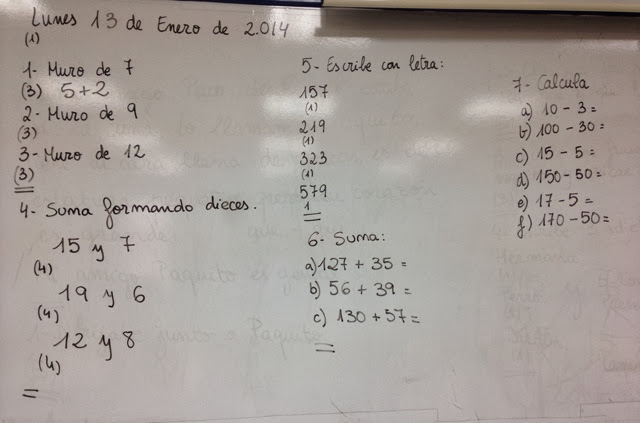 Lunes 13 de Enero de 2.014
(1)
1- Muro de 7
(3) 5+2
2- Muro de 9
(3)
3- Muro de 12
(3)
4- Suma formando dieces.
15 y 7
(4)
19 y 6
(4)
12 y 8
(4)
5- Escribe con letra:
157
(1)
219
(1)
323
(1)
579
1
6- Suma:
a) 127 + 35 =
b) 56 + 39 =
c) 130 + 57 =
7- Calcula
a) 10 - 3 =
b) 100 - 30 =
c) 15 - 5 =
d) 150 - 50 =
e) 17 - 5 =
f) 170 - 50 =